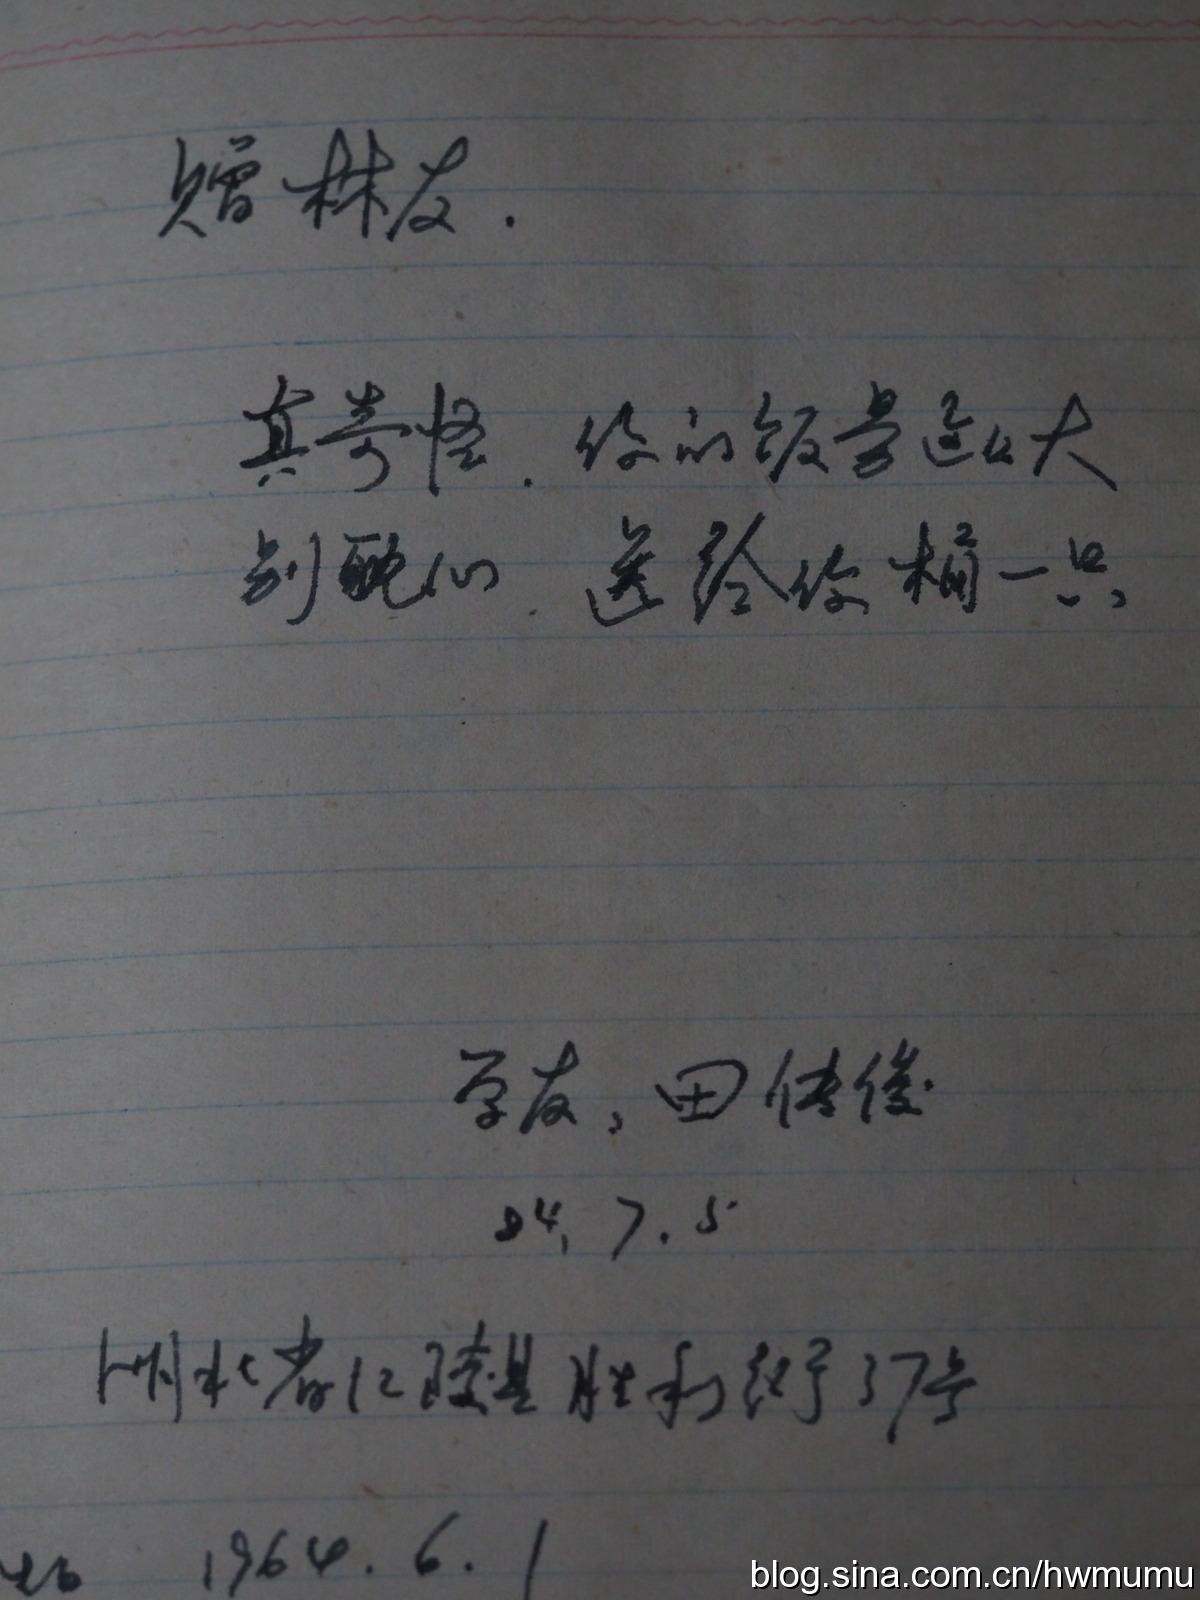 赠林友.
真奇怪.你的饭量这么大
别醜们.送给你桶一只
学友,田传俊
84.7.5
湖北省江陵县胜利街37号
1964.6.1
blog.sina.com.cn/hwmumu